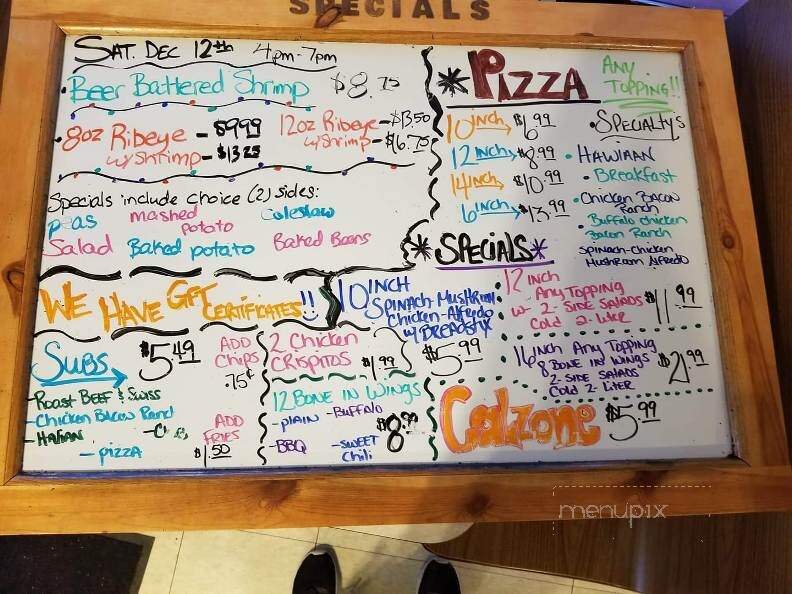 SPECIALS
SAT. DEC 12th 4pm-7pm
Beer Battered Shrimp $8.75
8oz Ribeye - $9.99
w/ Shrimp - $13.25
12oz Ribeye - $13.50
w/ Shrimp - $16.75
Specials include choice (2) sides:
peas mashed potato Coleslaw
Salad Baked potato Baked Beans
WE HAVE GIFT CERTIFICATES!!
SUBS $5.49
ADD
Chips
.75¢
- Roast Beef & Swiss
- Chicken Bacon Ranch
- Italian
- pizza
ADD
FRIES
$1.50
2 Chicken
CRISPITOS $1.99
12 BONE IN WINGS
- PLAIN - Buffalo
- BBQ - SWEET
Chili
$8.99
* PIZZA
ANY
TOPPING!!
10 INCH $6.99
12 INCH $8.99
14 INCH $10.99
16 INCH $13.99
• SPECIALTY'S
• HAWIIAN
• Breakfast
• Chicken Bacon
Ranch
• Buffalo chicken
Bacon Ranch
SPINACH-Chicken
MUSHROOM Alfredo
* SPECIALS *
10 INCH
SPINACH-MUSHROOM
Chicken-Alfredo
w/ BREADSTIX
$5.99
12 INCH
Any TOPPING
w- 2-SIDE SALADS
Cold 2-LITER
$11.99
16 INCH Any TOPPING
8 BONE IN WINGS
2-SIDE SALADS
Cold 2-LITER
$21.99
Calzone $5.99
menupix